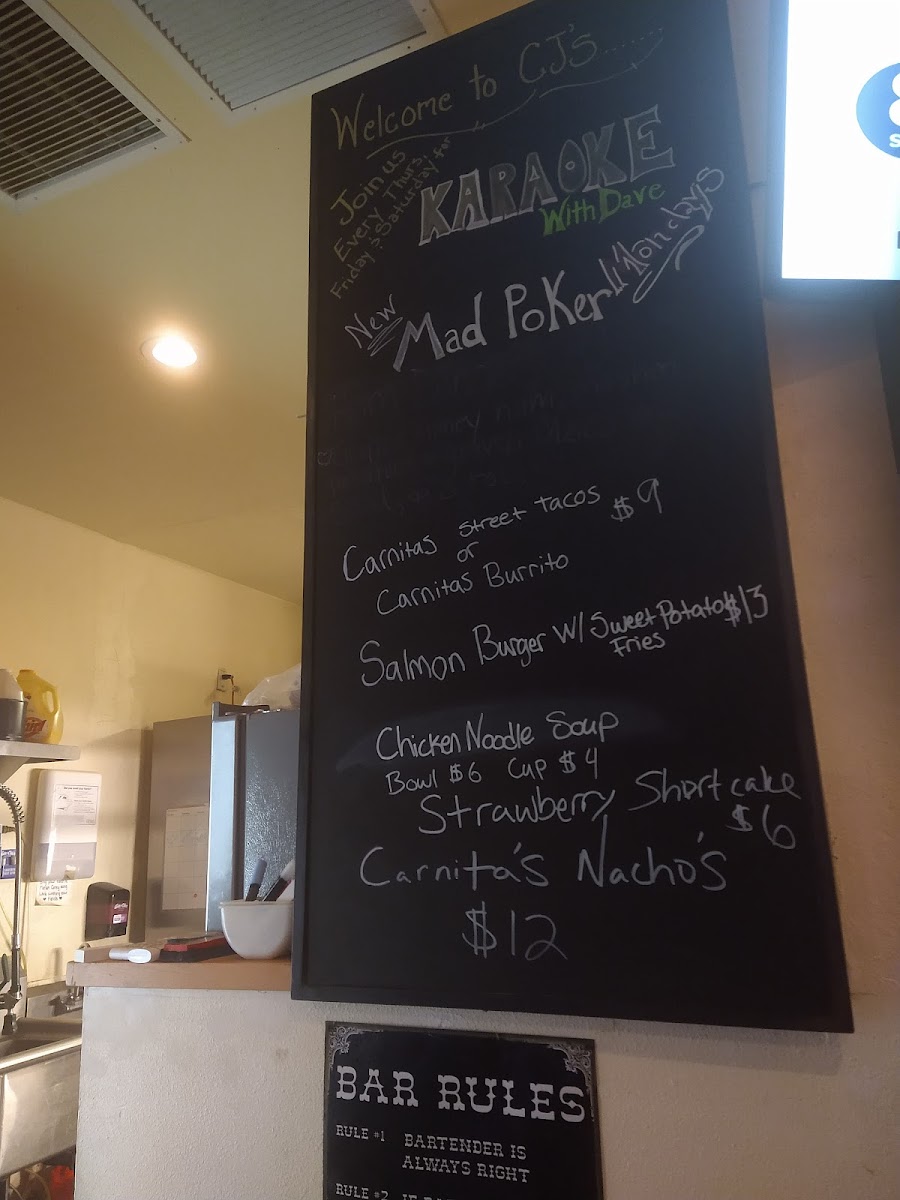 Welcome to CJ's.......
Join us
Every Thurs,
Friday & Saturday for
KARAOKE
With Dave
New
Mad Poker Mondays
Carnitas Street Tacos $9
or
Carnitas Burrito
Salmon Burger W/ Sweet Potato $13
Fries
Chicken Noodle Soup
Bowl $6 Cup $4
Strawberry Shortcake
$6
Carnita's Nacho's
$12
BAR RULES
RULE #1 BARTENDER IS
ALWAYS RIGHT
RULE #2